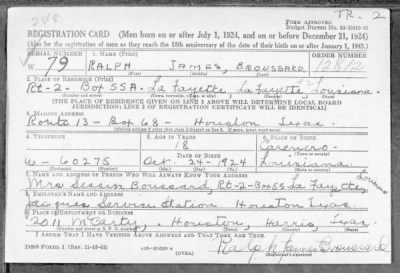 248
TR-2
FORM APPROVED
REGISTRATION CARD (Men born on or after July 1, 1924, and on or before December 31, 1924)
(Also for the registration of men as they reach the 18th anniversary of the date of their birth on or after January 1, 1943.)
SERIAL NUMBER
1. NAME (Print)
ORDER NUMBER
W 79
RALPH JAMES, BROUSSARD
12812
(First) (Middle) (Last)
2. PLACE OF RESIDENCE (Print)
Rt-2-Box 55A. La Fayette La Fayette, Louisiana.
[THE PLACE OF RESIDENCE GIVEN ON LINE 2 ABOVE WILL DETERMINE LOCAL BOARD
JURISDICTION; LINE 2 OF REGISTRATION CERTIFICATE WILL BE IDENTICAL]
3. MAILING ADDRESS
Route 13 - Box 68 - Houston Texas
4. TELEPHONE
5. AGE IN YEARS
6. PLACE OF BIRTH
18
Carencro
DATE OF BIRTH
W-60275
Oct. 24 - 1924
Louisiana
7. NAME AND ADDRESS OF PERSON WHO WILL ALWAYS KNOW YOUR ADDRESS
Louisiana
Mrs Broussard, Rt-2-Box 55 La Fayette
8. EMPLOYER'S NAME AND ADDRESS
Jacques Service Station Houston Texas
9. PLACE OF EMPLOYMENT OR BUSINESS
2011 McCarty, Houston, Harris, Texas.
I AFFIRM THAT I HAVE VERIFIED ABOVE ANSWERS AND THAT THEY ARE TRUE.
DSS Form 1 (Rev. 11-16-42)
(OVER)
Ralph James Broussard